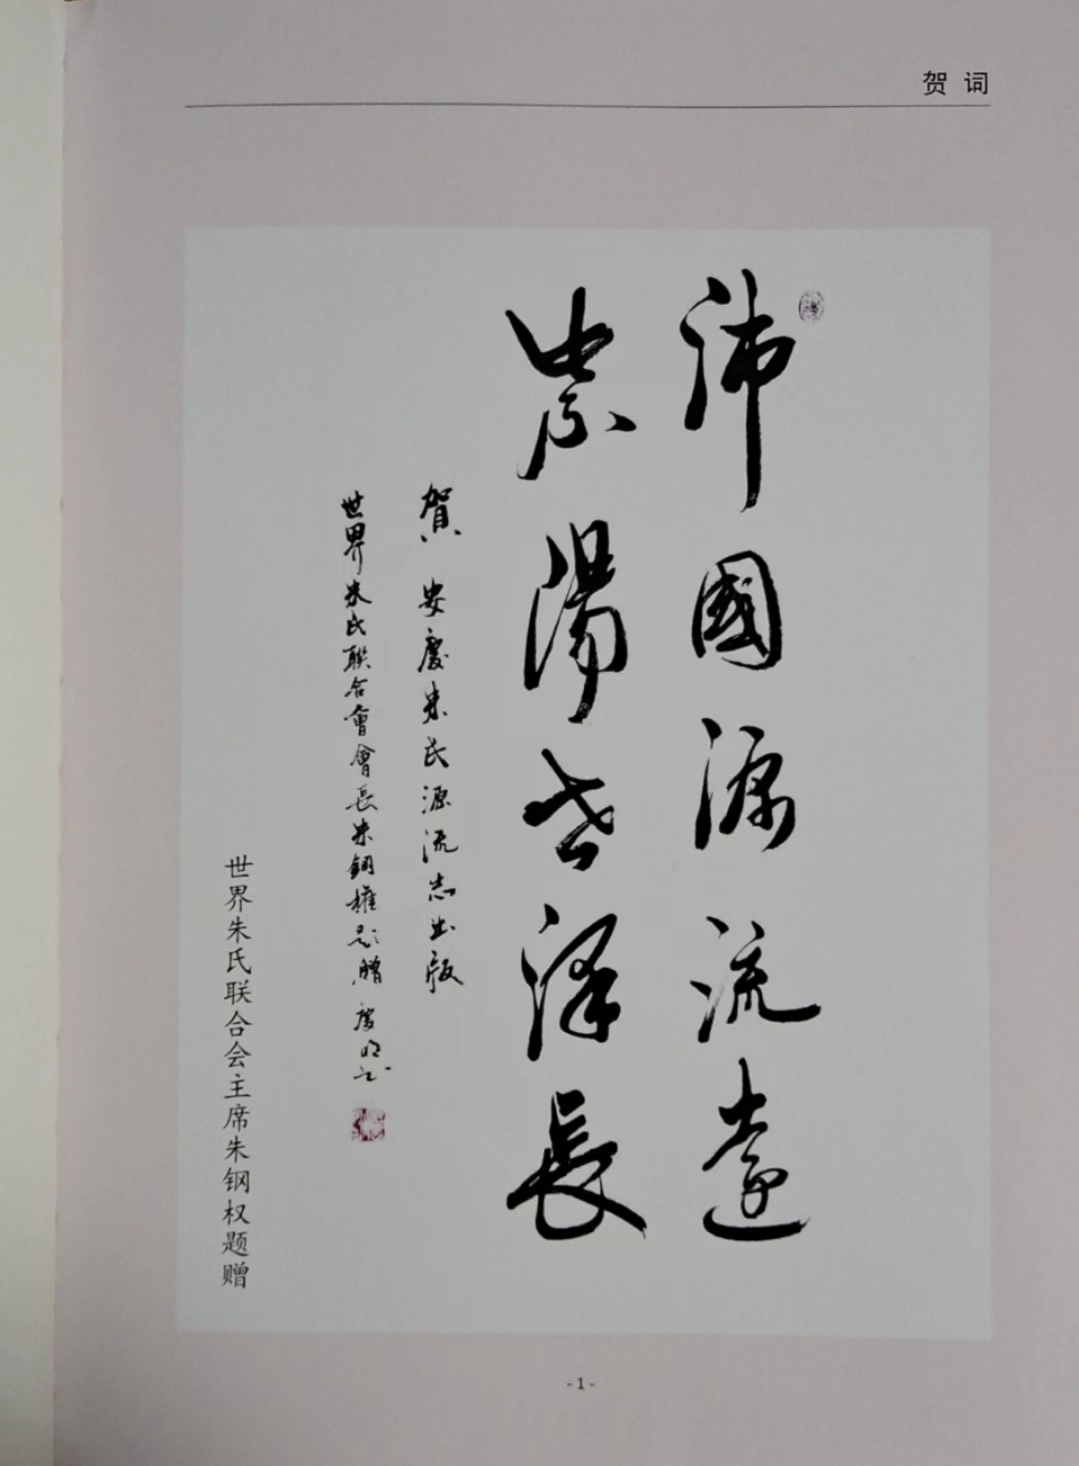 贺 词
沛國源流遠
紫陽世澤長
賀 安慶朱氏源流志出版
世界朱氏聯合會會長朱鋼權題贈
世界朱氏联合会主席朱钢权题赠
- 1 -